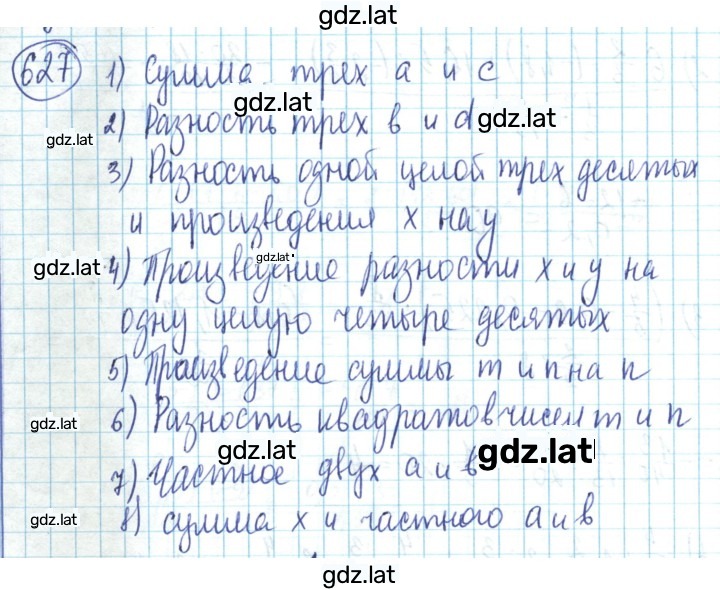 gdz.lat
627 1) Сумма трех a и c
gdz.lat
2) Разность трех в и d gdz.lat
gdz.lat
3) Разность одной целой трех десятых
и произведения x на y
gdz.lat 4) Произведение разности x и y на
gdz.lat
одну целую четыре десятых
5) Произведение суммы m и n на n
gdz.lat 6) Разность квадратов чисел m и n
gdz.lat gdz.lat
7) Частное двух a и в
gdz.lat 8) сумма x и частного a и в
gdz.lat